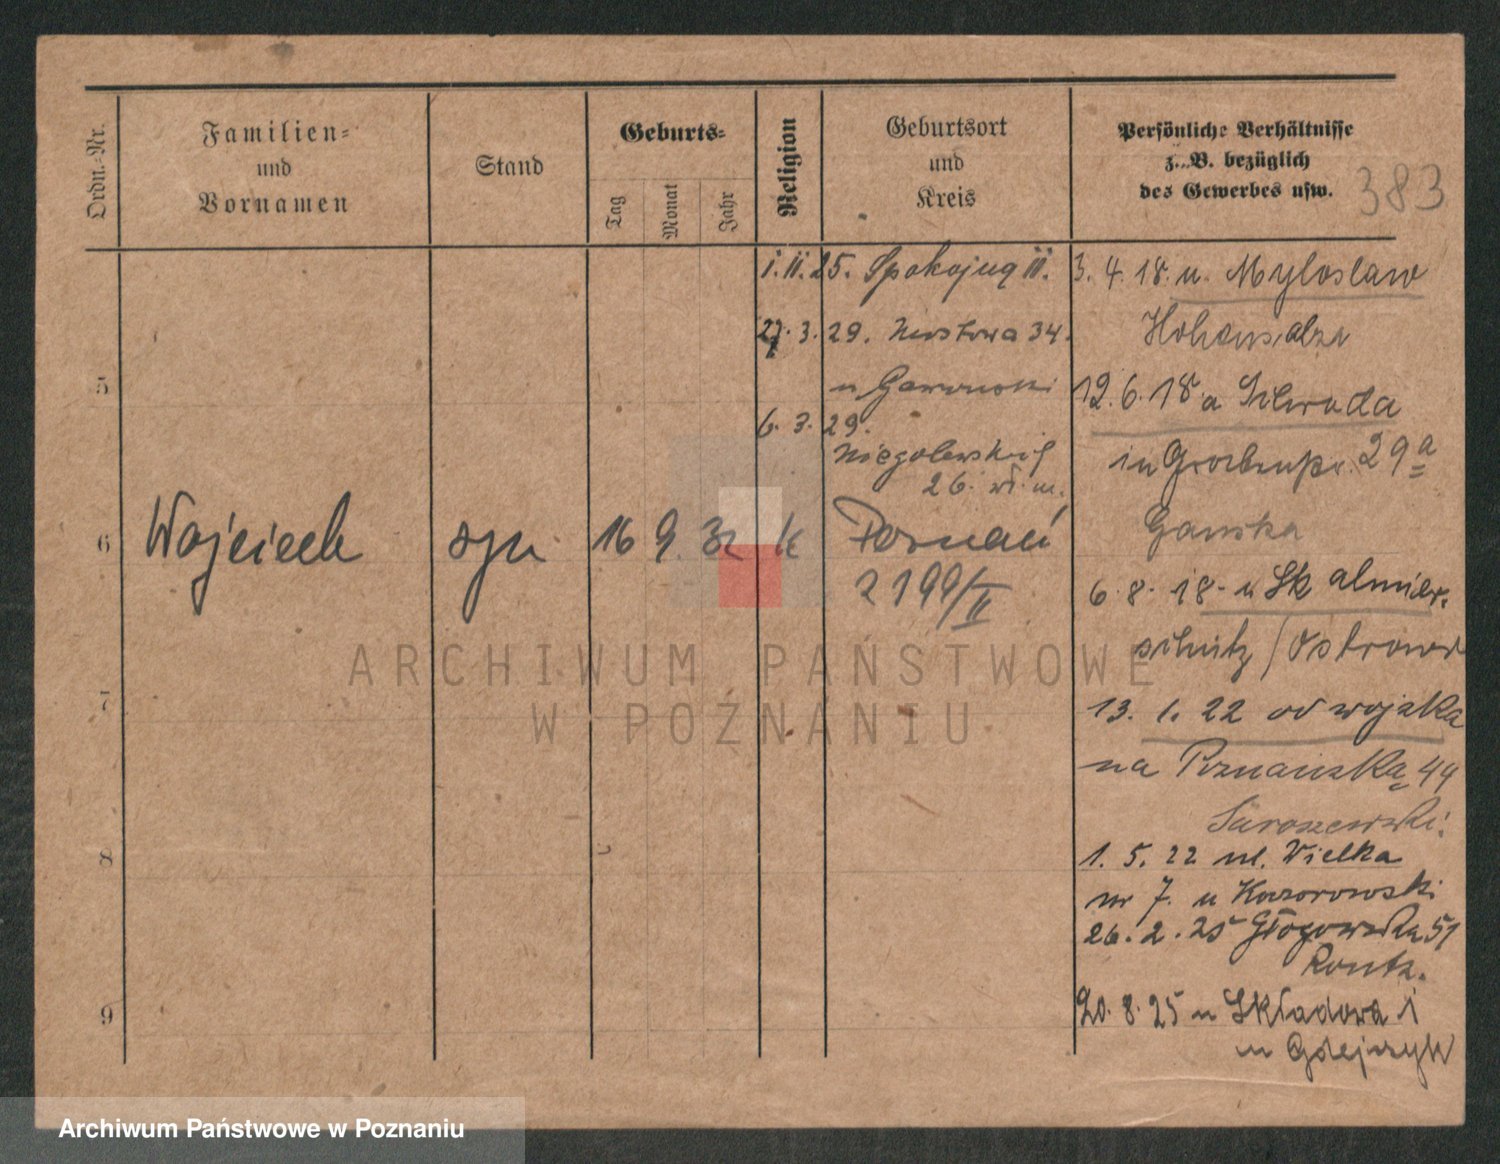 Ordn.-Nr.
Familien-
und
Vornamen
Stand
Geburts-
Tag
Monat
Jahr
Religion
Geburtsort
und
Kreis
Persönliche Verhältnisse
z. B. bezüglich
des Gewerbes usw.
383
1. II. 25. Spokojną III.
27. 3. 29. 34.
u Gawronski
6. 3. 29.
Niegolewskich
26.
5
6
Wojciech
syn
16
9.
32
k
Poznań
2199/II
7
8
9
3. 4. 18. n. Myloslaw
Hohensalza
12. 6. 18 a Schroda
in 29a
Ganska
6. 8. 18 - n Sk almier-
schütz / Ostrowo
13. 1. 22 od wojska
na Poznańską 44
1. 5. 22 ul. Wielka
nr 7. u Kaczorowski
26. 2. 25 Głogowska 51
20. 8. 25 Składowa 1
u
ARCHIWUM PAŃSTWOWE
W POZNANIU
Archiwum Państwowe w Poznaniu